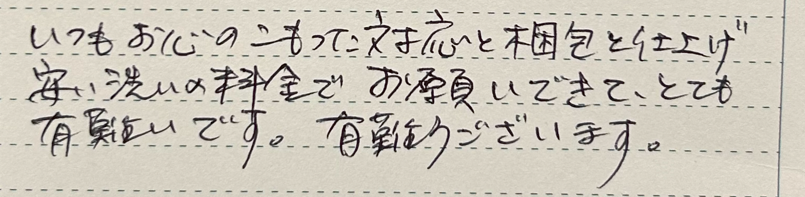 いつもお心のこもった対応と梱包と仕上げ
安い洗いの料金でお願いできて、とても
有難いです。有難うございます。